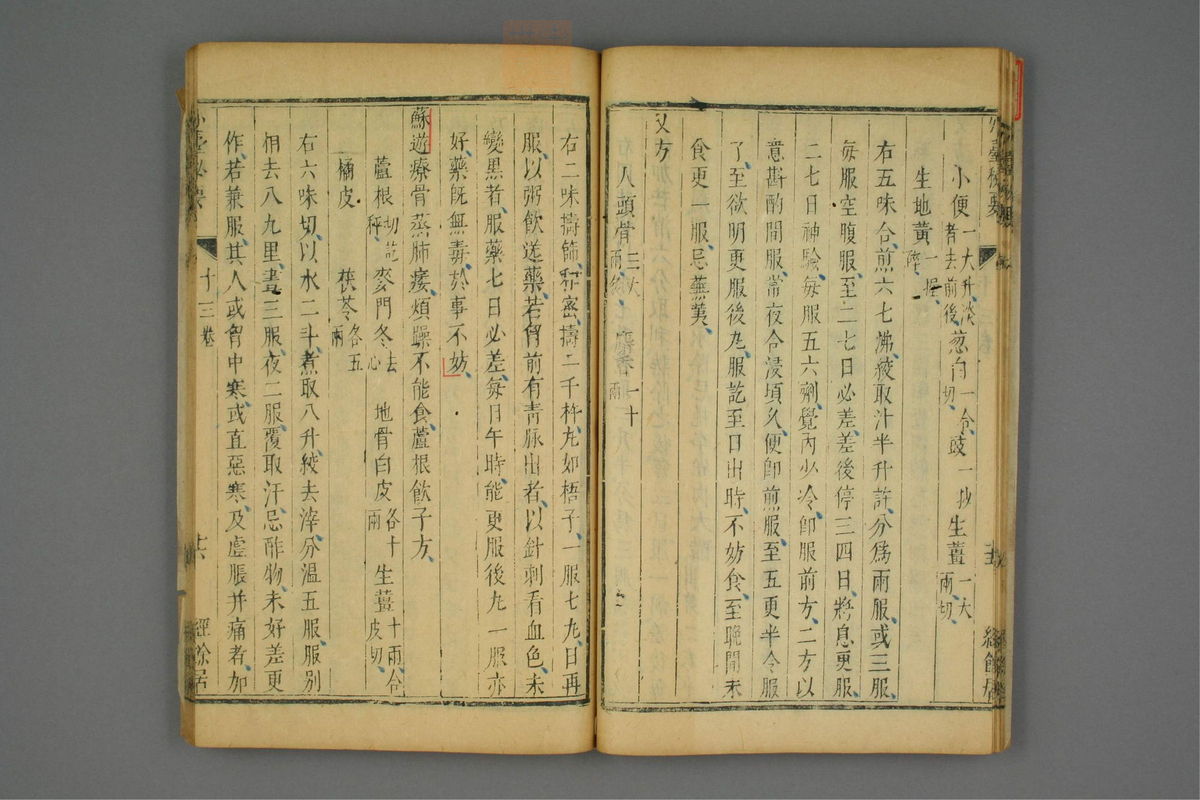 小便一大升淡者去前後葱白一合切豉一抄生薑一大兩切
生地黄一握碎
右五味合煎六七沸絞取汁半升許分爲兩服或三服
每服空腹服至二七日必差差後停三四日將息更服
二七日神驗每服五六劑覺內少冷卽服前方二方以
意斟酌間服常夜合浸頃久便卽煎服至五更半令服
了至欲明更服後丸服訖至日出時不妨食至晚間未
食更一服忌蕪荑
又方
人頭骨三大兩炙麝香一十兩
右二味擣篩和密擣二千杵丸如梧子一服七丸日再
服以粥飲送藥若胷前有青脉出者以針刺看血色未
變黒者服藥七日必差每日午時能更服後丸一服亦
好藥旣無毒於事不妨
蘇遊療骨蒸肺痿煩躁不能食蘆根飲子方
蘆根切訖秤麥門冬去心地骨白皮各十兩生薑十兩合皮切
橘皮茯苓各五兩
右六味切以水二斗煮取八升絞去滓分溫五服服別
相去八九里晝三服夜二服覆取汗忌酢物未好差更
作若兼服其人或胷中寒或直惡寒及虛脹并痛者加
外臺祕要
十三卷
共
經餘居